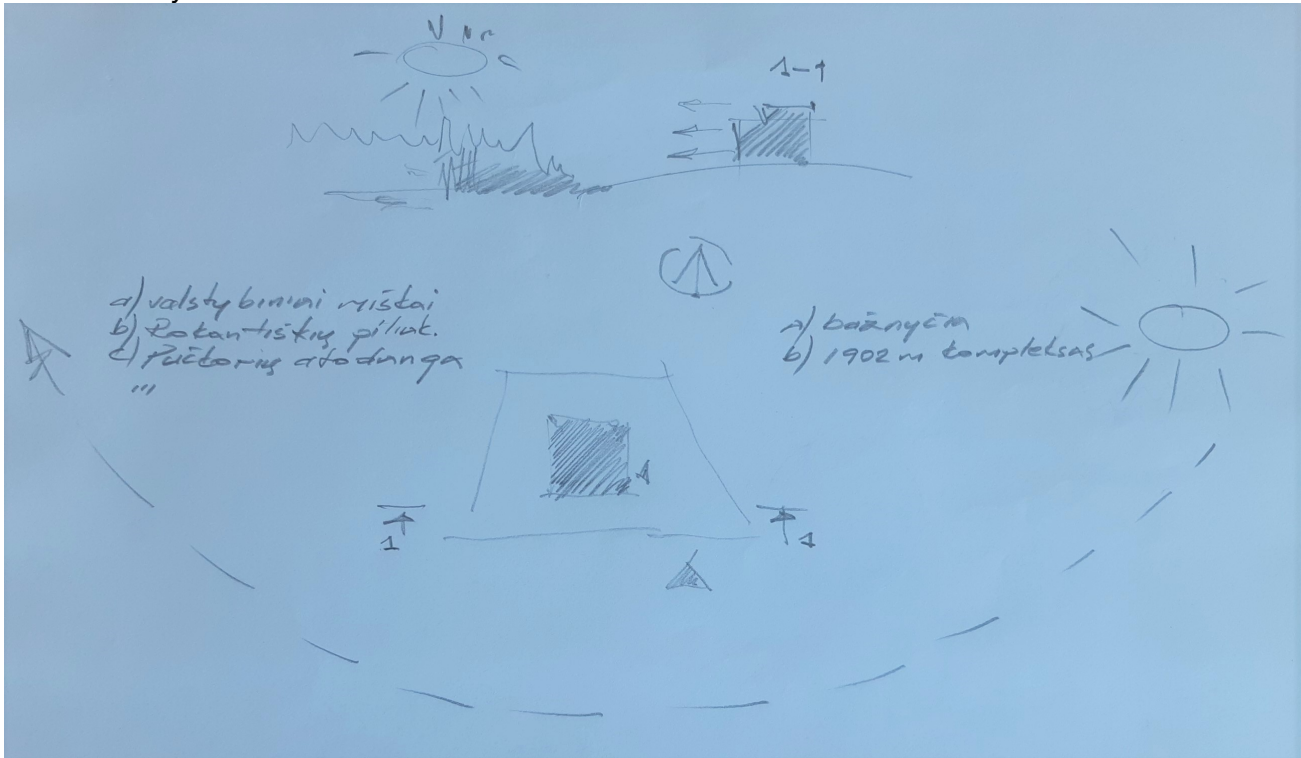 1-1
a) valstybiniai miškai
b) Rokantiškių piliak.
c) Pučkorių atodanga
"'
a) bažnyčia
b) 1902 m kompleksas
A
1
1